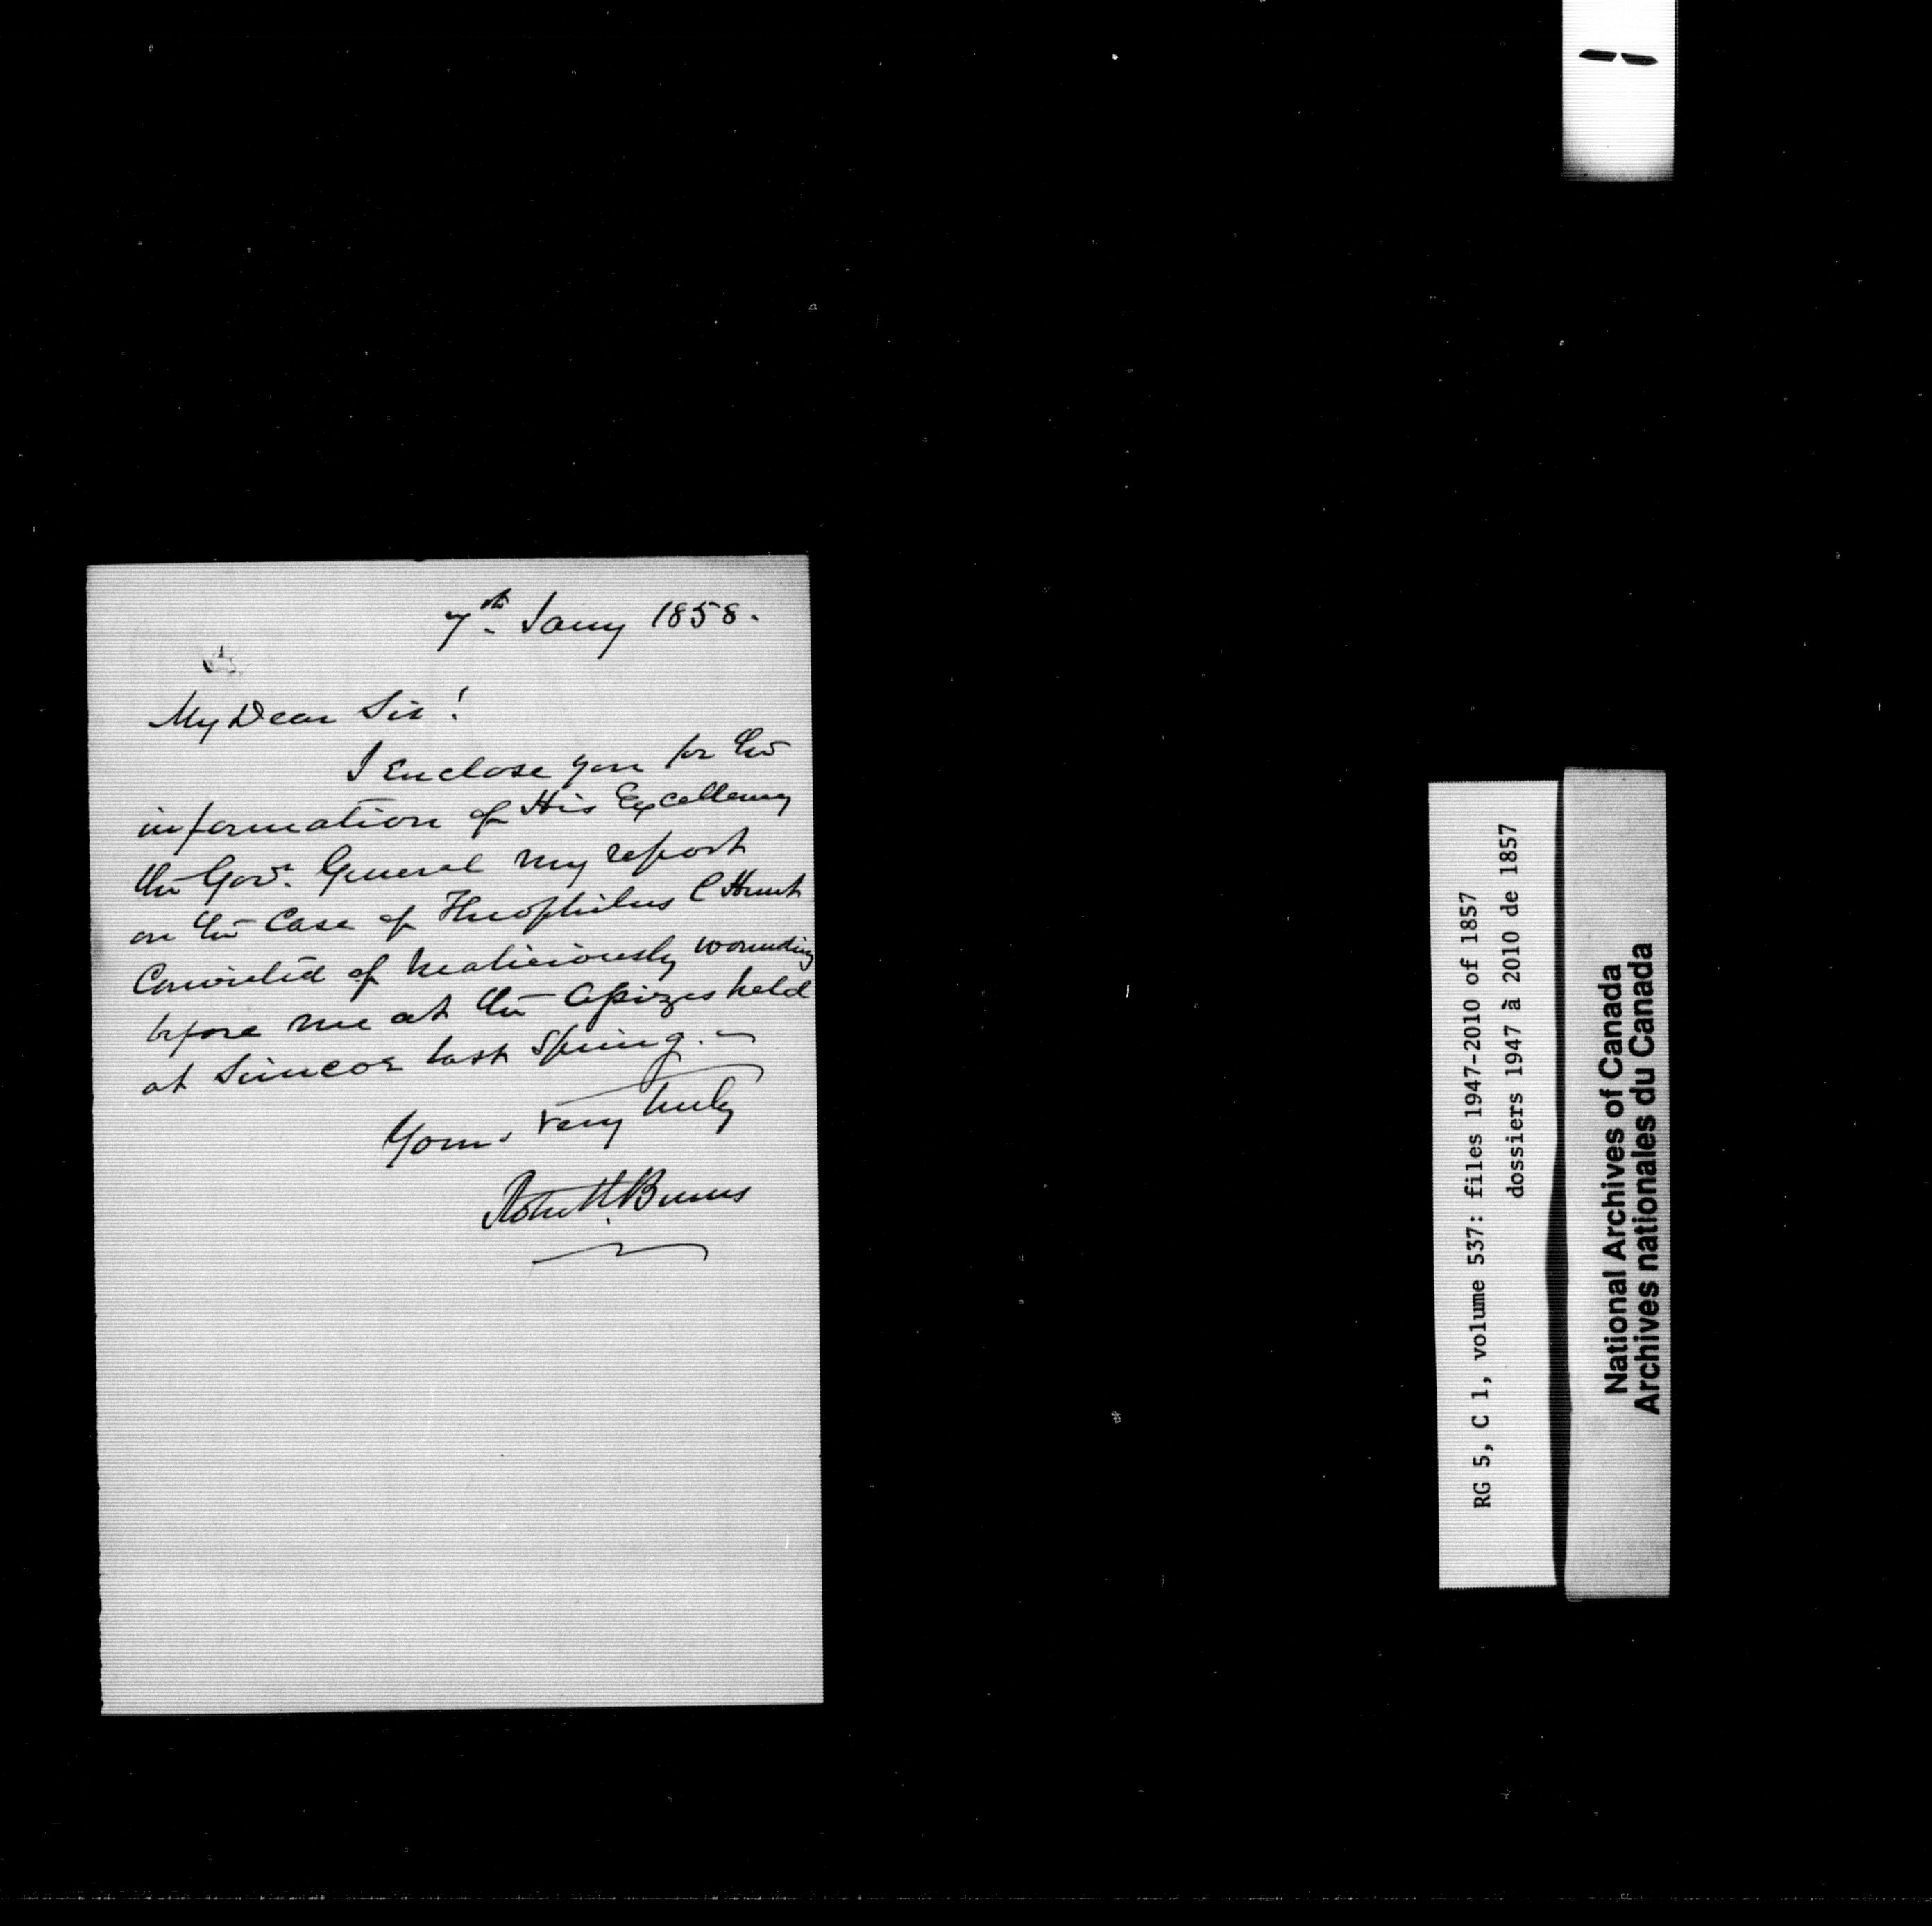 7th. Jany 1858.
My Dear Sir!
I Enclose you for the
information of His Excellency
the Govr. General my report
on the Case of Theophilus C Hunt
Convicted of maliciously wounding
before me at the Assizes held
at Simcoe last Spring. —
Yours very truly
Robt. E. Burns
RG 5, C 1, volume 537: files 1947-2010 of 1857
dossiers 1947 à 2010 de 1857
National Archives of Canada
Archives nationales du Canada